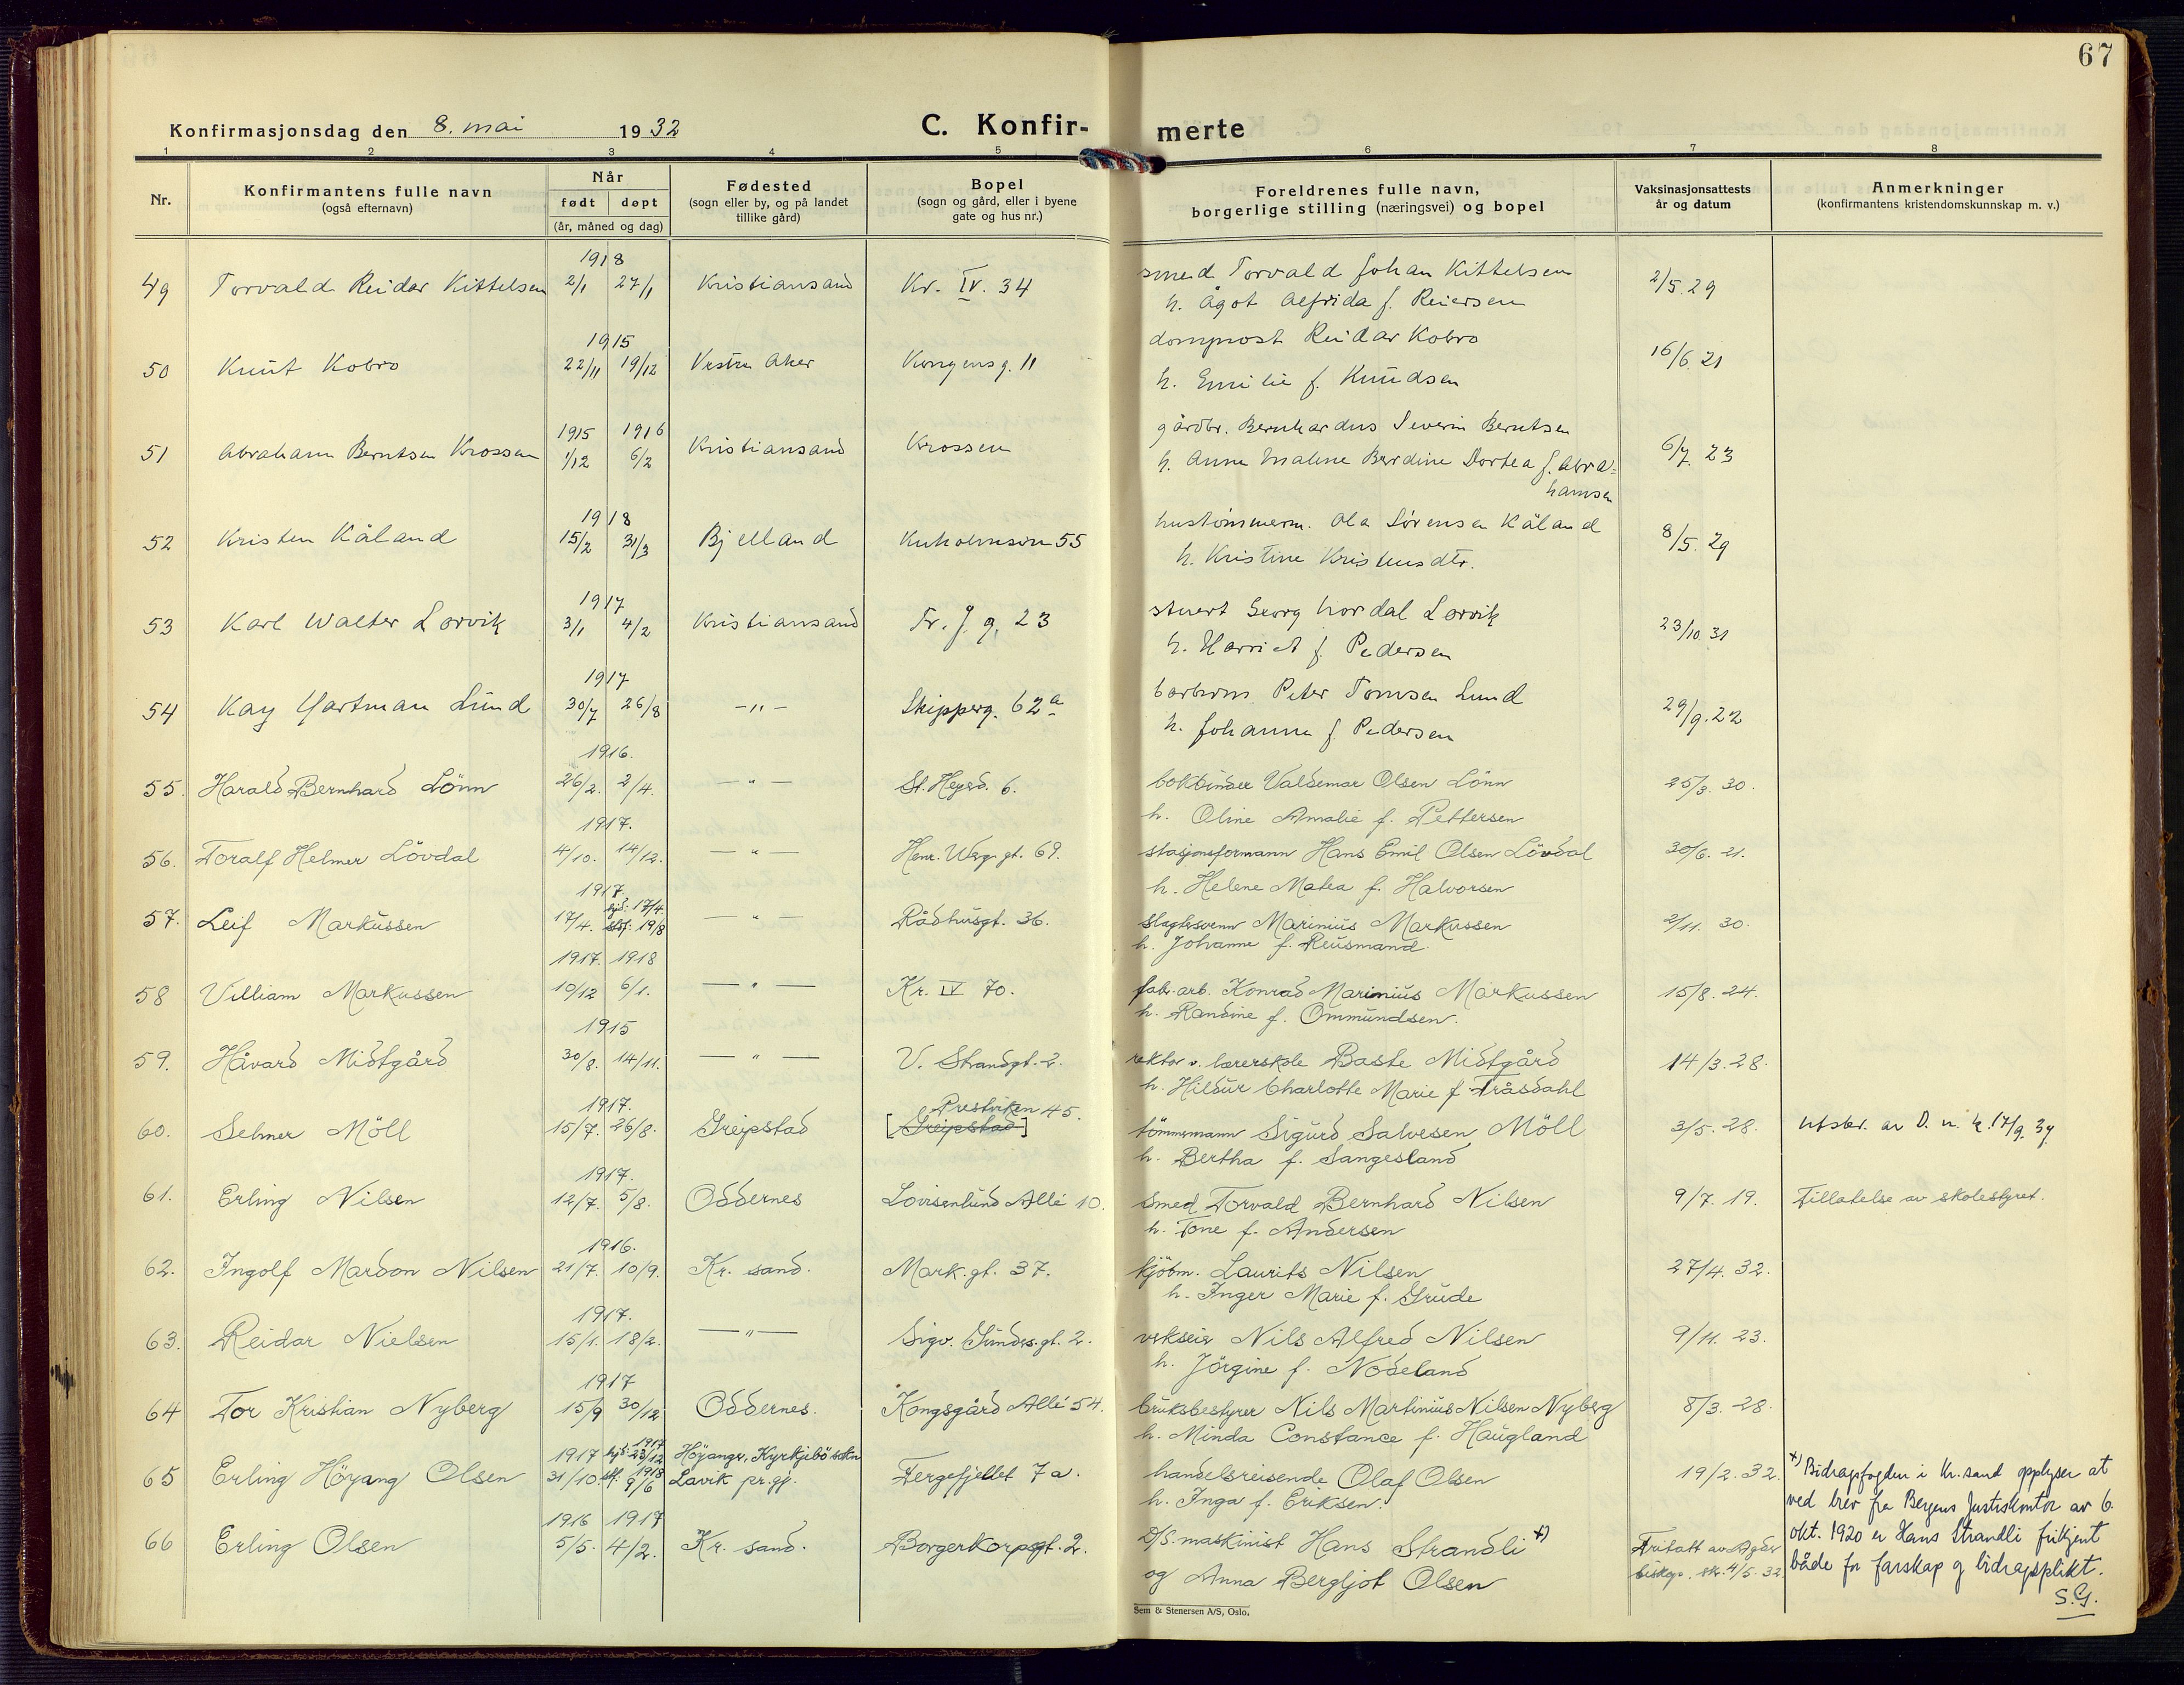 67
Konfirmasjonsdag den 8. mai 1932
C. Konfir-merte
1 2 3 4 5 6 7 8
Nr.
Konfirmantens fulle navn
(også efternavn)
Når
født døpt
(år, måned og dag)
Fødested
(sogn eller by, og på landet
tillike gård)
Bopel
(sogn og gård, eller i byene
gate og hus nr.)
Foreldrenes fulle navn,
borgerlige stilling (næringsvei) og bopel
Vaksinasjonsattests
år og datum
Anmerkninger
(konfirmantens kristendomskunnskap m. v.)
1918
49 Torvald Reidar Kittelsen 2/1 27/1 Kristiansand Kr. IV. 34 smed Torvald Johan Kittelsen 2/5. 29
h. Ågot Alfrida f. Reiersen
1915
50 Knut Kobro 22/11 19/12 Vestre Aker Kongensg. 11 domprost Reidar Kobro 16/6. 21
h. Emilie f. Knudsen
1915 1916
51 Abraham Berntsen Krossen 1/12 6/2 Kristiansand Krossen gårdbr. Bernhardus Severin Berntsen 6/7. 23
h. Anne Malene Berdine Dortea f. Abra=
hamsen
1918
52 Kristen Kåland 15/2 31/3 Bjelland Kuholmsvn 55 hustømmerm. Ola Sørensen Kåland 8/5. 29
h. Kristine Kristensdtr.
1917
53 Karl Walter Larvik 3/1 4/2 Kristiansand Tr. f. g. 23 stuert Georg Nordal Larvik 23/10. 31
h. Harriet f. Pedersen
1917
54 Kay Hartman Lund 30/7 26/8 -"- Skipperg. 62a Peter Tomsen Lund 29/9. 22
h. Johanne f. Pedersen
1916.
55. Harald Bernhard Lönn 26/2. 2/4. -"- St. Hejed. 6. bokbinder Valdemar Olsen Lönn 25/3. 30.
h. Oline Amalie f. Pettersen
1917.
56. Toralf Helmer Lövdal 4/10. 14/12. -"- Henr. Werg. gt. 69. stasjonsformann Hans Emil Olsen Lövdal 30/6. 21.
h. Helene Matea f. Halvorsen
1917.
57. Leif Markussen 17/4. hjd: 17/4. stf: 19/8 -"- Rådhusgt. 36. slagtersvenn Marinius Markussen 2/11. 30.
h. Johanne f. Reusmand.
1917. 1918
58 Villiam Markussen 10/12 6/1. -"- Kr. IV 70. fabr. arb. Konrad Marinius Markussen 15/8. 24.
h. Randine f. Ommundsen.
1915
59. Håvard Midtgård 30/8. 14/11. -"- V. Strandgt. 2. rektor v. lærerskole Baste Midtgård 14/3. 28.
h. Hildur Charlotte Marie f. Tråsdahl
1917. Prestviken 45.
60. Selmer Möll 15/7. 26/8. Greipstad [Greipstad] tömmermann Sigurd Salvesen Möll 3/5. 28. Utskr. av D. n. k. 17/9. 34
h. Bertha f. Sangesland
1917.
61. Erling Nilsen 12/7. 5/8. Oddernes Lovisenlund Allé 10. Smed Torvald Bernhard Nilsen 9/7. 19. Tillatelse av skolestyret.
h. Tone f. Andersen
1916.
62. Ingolf Mardon Nilsen 21/7. 10/9. Kr. sand. Mark. gt. 37. kjöbm. Laurits Nilsen 27/4. 32.
h. Inger Marie f. Grude
1917.
63. Reidar Nielsen 15/1. 18/2. -"- Sigv. Skuldes. gt. 2. verkseier Nils Alfred Nilsen 9/11. 23.
h. Jörgine f. Nodeland
1917
64 Tor Kristian Nyberg 15/9 30/12 Oddernes. Kongsgård Allé 54. bruksbestyrer Nils Martinius Nilsen Nyberg 8/3. 28.
h. Minda Constance f. Haugland
1917 hjd: 1917 23/12 Höyanger, Kyrkjebö sokn
65 Erling Höyang Olsen 31/10. stf: 1918 9/6 Lavik pr.gj. Fergefjellet 7a. handelsreisende Olaf Olsen 19/2. 32.
h. Inga f. Eriksen.
1916 1917
66 Erling Olsen 5/5. 4/2. Kr. sand. Borgerkorpsgt. 2. D/S. maskinist Hans Strandli x)
og Anna Bergljot Olsen
Fritatt av Agder
biskop. skr. 4/5. 32
x) Bidragsfogden i Kr.sand opplyser at
ved brev fra Bergens Justiskontor av 6.
okt. 1920 er Hans Strandli frikjent
både for farskap og bidragsplikt.
S.G.
Sem & Stenersen A/S, Oslo.